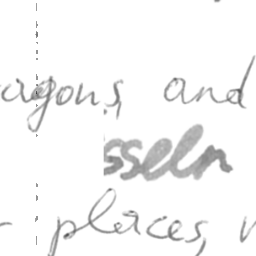 agons, and
sseln
places,